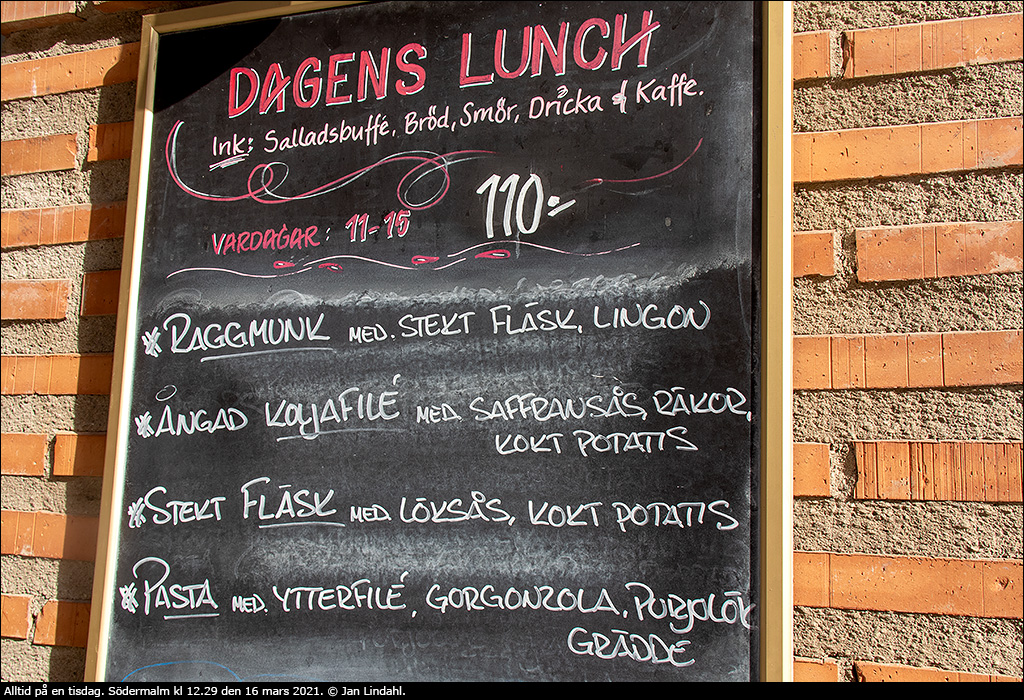 DAGENS LUNCH
Ink: Salladsbuffé, Bröd, Smör, Dricka & Kaffe.
110:-
VARDAGAR: 11-15
* RAGGMUNK MED. STEKT FLÄSK, LINGON
* ÅNGAD KOLJAFILÉ MED. SAFFRANSÅS, RÄKOR,
KOKT POTATIS
* STEKT FLÄSK MED. LÖKSÅS, KOKT POTATIS
* PASTA MED. YTTERFILÉ, GORGONZOLA, PURJOLÖK
GRÄDDE
Alltid på en tisdag. Södermalm kl 12.29 den 16 mars 2021. © Jan Lindahl.